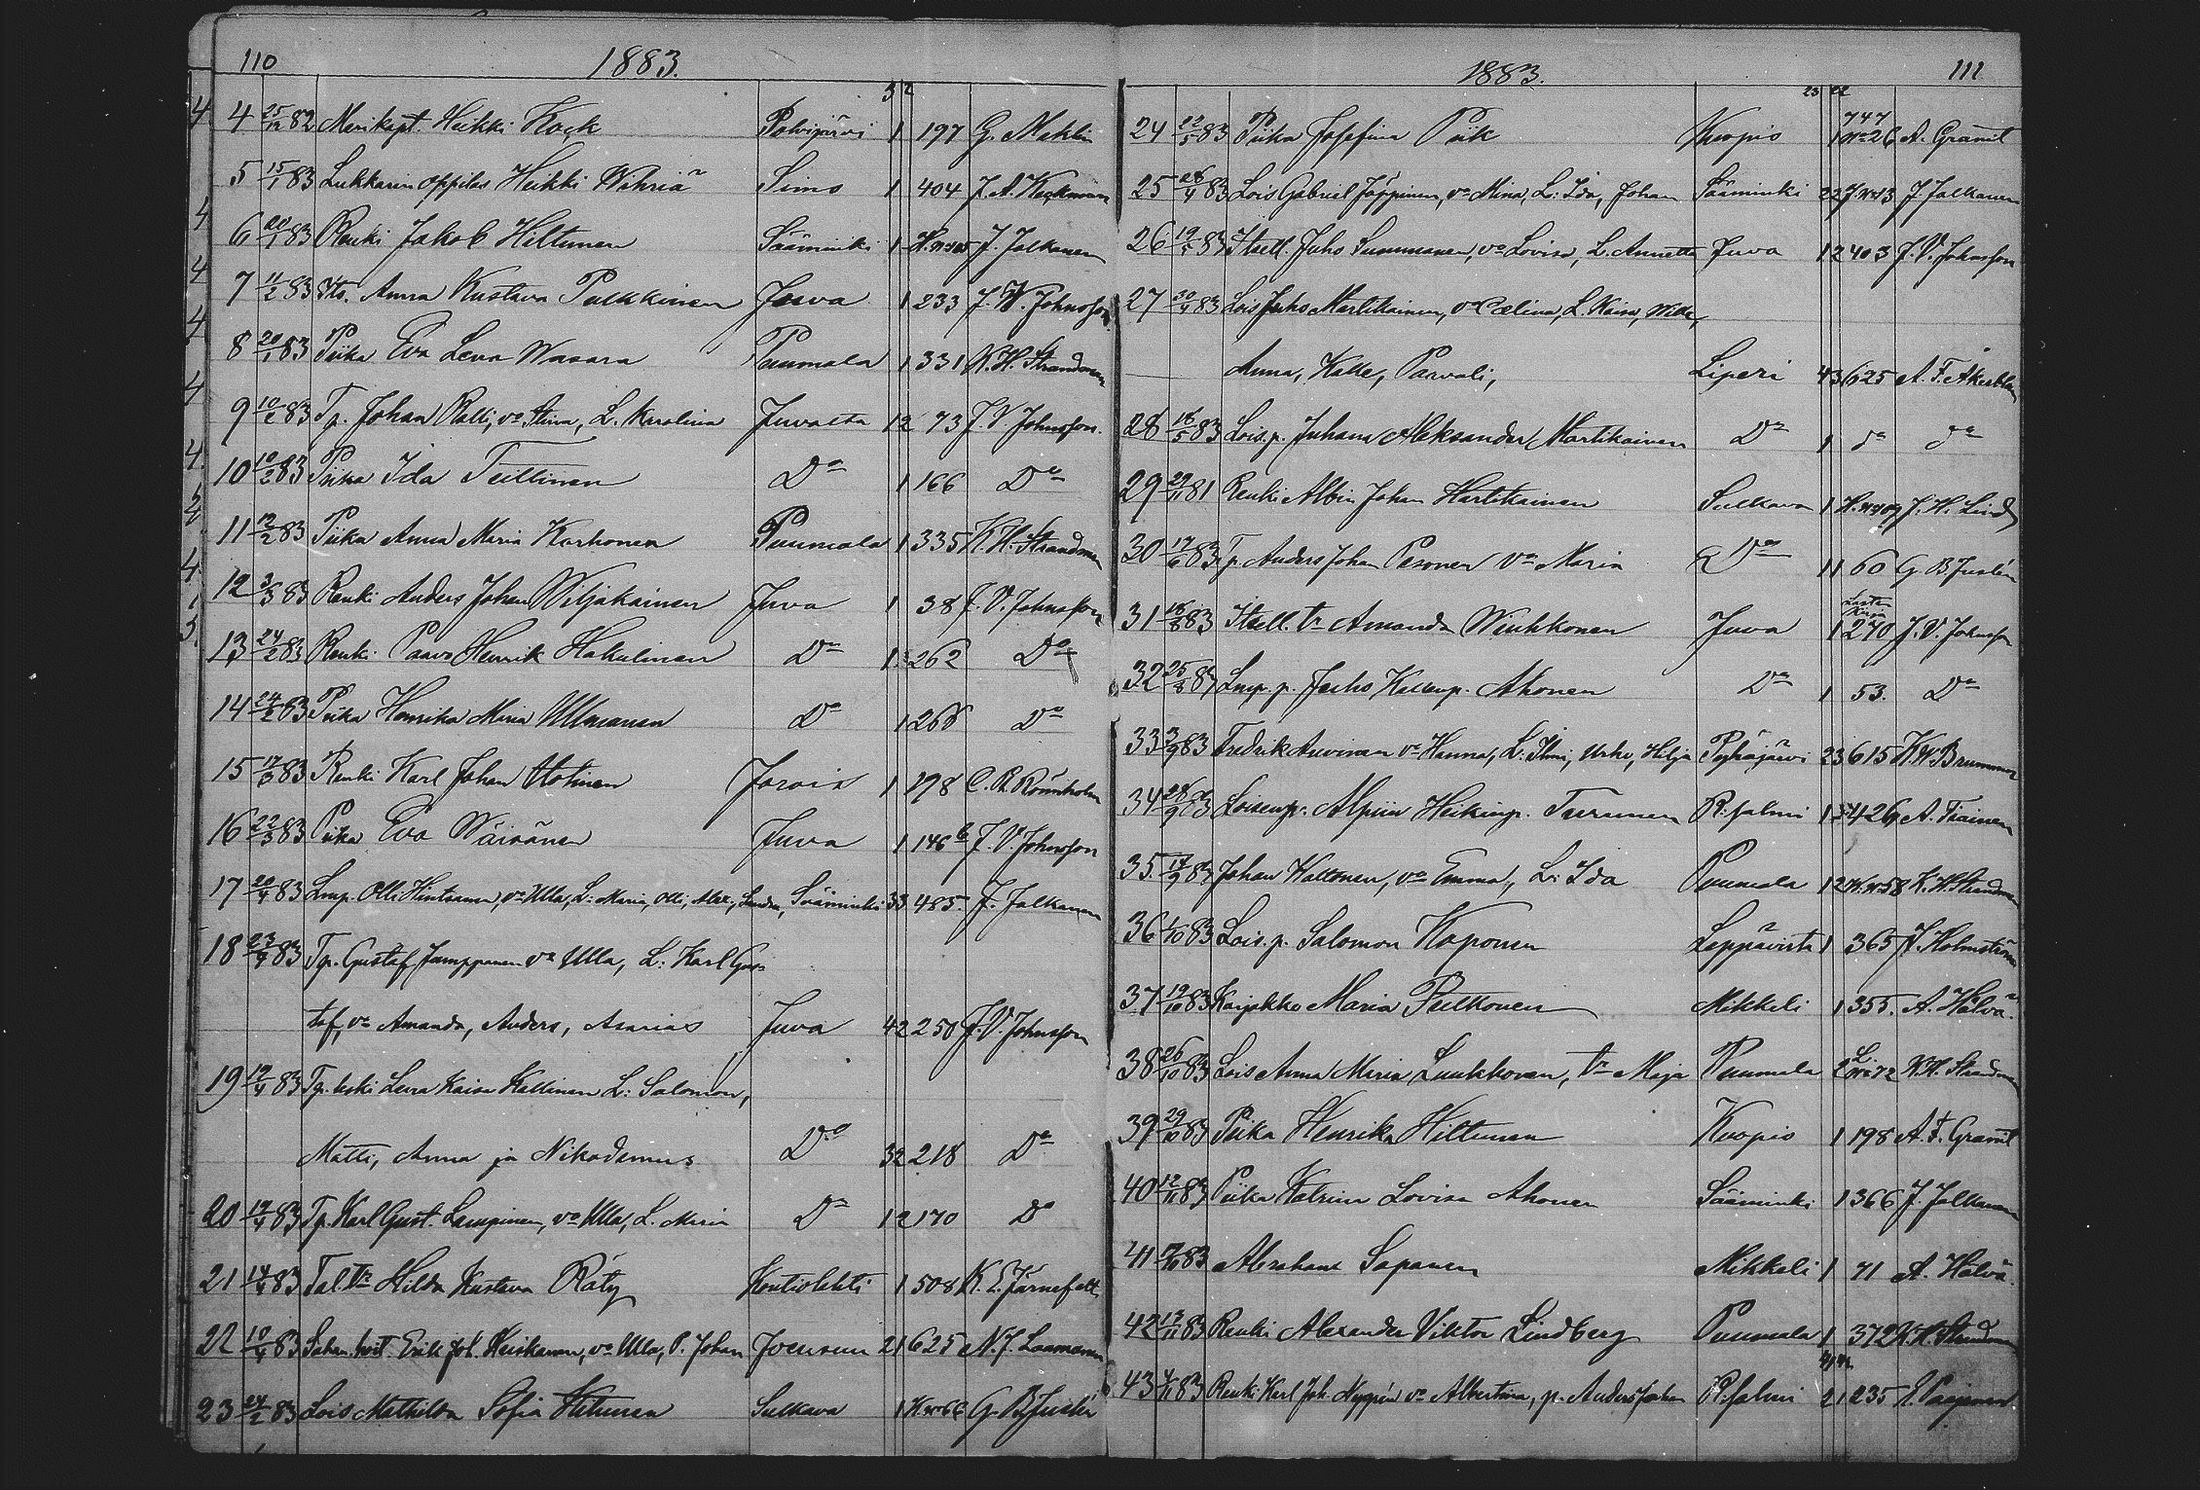 110 1883.
3 2
4 25/12 82 Merikapt. Heikki Kock Polvijärvi 1 197 G. Mahlin
5 15/1 83 Lukkarin oppilas Heikki Wihriä Simo 1 404 J. A.
6 83 Renki Jakob Hiltunen Sääminki 1 J. Jalkanen
7 11/2 83 Its. Anna Kustava Pulkkinen Juva 1 233 J. V. Johnsson
8 20/1 83 Piika Eva Lena Wasara Puumala 1 331 K. H. Strandman
9 10/2 83 Tp. Johan Ralli, vo Stina, L. Karolina Juvalta 1 2 73 J. V. Johnsson.
10 10/2 83 Piika Ida Tullinen Do 1 166 Do
11 12/2 83 Piika Anna Maria Karhonen Puumala 1 335 K. H. Strandman
12 3/3 83 Renki Anders Johan Wiljakainen Juva 1 38 J. V. Johnsson
13 24/2 83 Renki Paavo Henrik Hakulinen Do 1 262 Do
14 24/2 83 Piika Henrika Maria Ullmanen Do 1 266 Do
15 17/3 83 Renki Karl Johan Jorois 1 298 C. R. Rönnholm
16 22/3 83 Piika Eva Wäisänen Juva 1 146 J. V. Johnsson
17 20/4 83 Lmp. Olli Hintsanen, vo Ulla, L: Maria, Olli, Alex, Sääminki 3 3 485. J. Jalkanen
18 23/4 83 Tp. Gustaf Jamppanen vo Ulla, L: Karl Gus-
taf, vo Amanda, Anders, Asarias Juva 4 2 250 J. V. Johnsson
19 19/4 83 Tp. leski Leena Kaisa Kallinen L: Salomon,
Matti, Anna ja Nikodemus Do 3 2 218 Do
20 19/4 83 Tp. Karl Gust. Lampinen, vo Ulla, L. Maria Do 1 2 170 Do
21 14/4 83 Tal. tr Hilda Kustava Räty Kontiolahti 1 508 K. L. Järnefelt
22 10/4 83 Erik Joh. Heiskanen, vo Ulla, P. Johan Joensuu 2 1 625 N. J. Laamanen
23 24/2 83 Lois Mathilda Sofia Sulkava 1 G. B. Juslén
1883. 111
23 22
24 22/5 83 Piika Josefina Puk Kuopio 1 747 No 26 A. Granit
25 28/4 83 Lois Gabriel Jäppinen, vo Mina, L: Ida, Johan Sääminki 2 2 J. Jalkanen
26 19/5 83 Itsell. Juho Summanen, vo Lovisa, L. Annetta Juva 1 2 403 J. V. Johnsson
27 30/4 83 Lois Juho Martikainen, vo Celina, L. Kaisa, Wille,
Anna, Kalle, Paavali, Liperi 4 3 625 A. F. Åkerblom
28 16/5 83 Lois. p. Juhana Aleksander Martikainen Do 1 do do
29 29/11 81 Renki Albin Johan Hartikainen Sulkava 1 J. H. Lind
30 17/6 83 Tp. Anders Johan Pesonen vo Maria Do 1 1 60 G. B. Juslén
31 18/8 83 Itsell. tr Amanda Wiukkonen Juva 1 270 J. V. Johnsson
32 25/8 83 Lmp. p. Juho Kallenp. Ahonen Do 1 53. Do
33 3/9 83 Fredrik Auvinen vo Hanna, L. Ilmi, Urho, Hilja Pyhäjärvi 2 3 615 K. W. Brummer
34 28/9 83 Loisenp. Alpiin Heikinp. Turunen R. salmi 1 426 A. Tiainen
35. 14/9 83 Johan Kattonen, vo Emma, L: Ida Puumala 1 2 58 K. H. Strandman
36 1/10 83 Lois. p. Salomon Koponen Leppävirta 1 365 Holmström
37 19/10 83 Karjakko Maria Pulkonen Mikkeli 1 355. A. Hälvä.
38 26/10 83 Lois Anna Maria Luukkonen, tr Maja Puumala 2 No 72 K. H. Strandman
39 29/10 83 Piika Henrika Hiltunen Kuopio 1 198 A. F. Granit
40 12/11 83 Piika Katrina Lovisa Ahonen Sääminki 1 366 J. Jalkanen
41 83 Abraham Sapanen Mikkeli 1 71 A. Hälvä
42 13/11 83 Renki Alexander Viktor Lindberg Puumala 1 372 K. H. Strandman
43 4/11 83 Renki Karl Joh. Nygrén vo Albertina, p. Anders Johan R. salmi 2 1 235